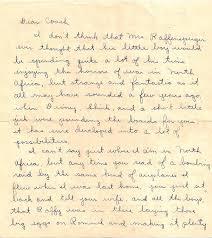 Dear Coach
I don't think that Mr Raffensperger
ever thought that his little boy would
be spending quite a lot of his time
enjoying the horrors of war in North
Africa, but strange and fantastic as it
all may have sounded a few years ago,
when Quincy, and a short little
guy were pounding the boards for you
it has now developed into a lot of
possibilities.
I can't say just where I am in North
Africa, but any time you read of a bombing
raid by the same kind of airplanes I
flew when I was last home, you just sit
back and tell your wife, and all the boys,
that Raffy was in there laying those
big eggs on Rommel and making it plenty